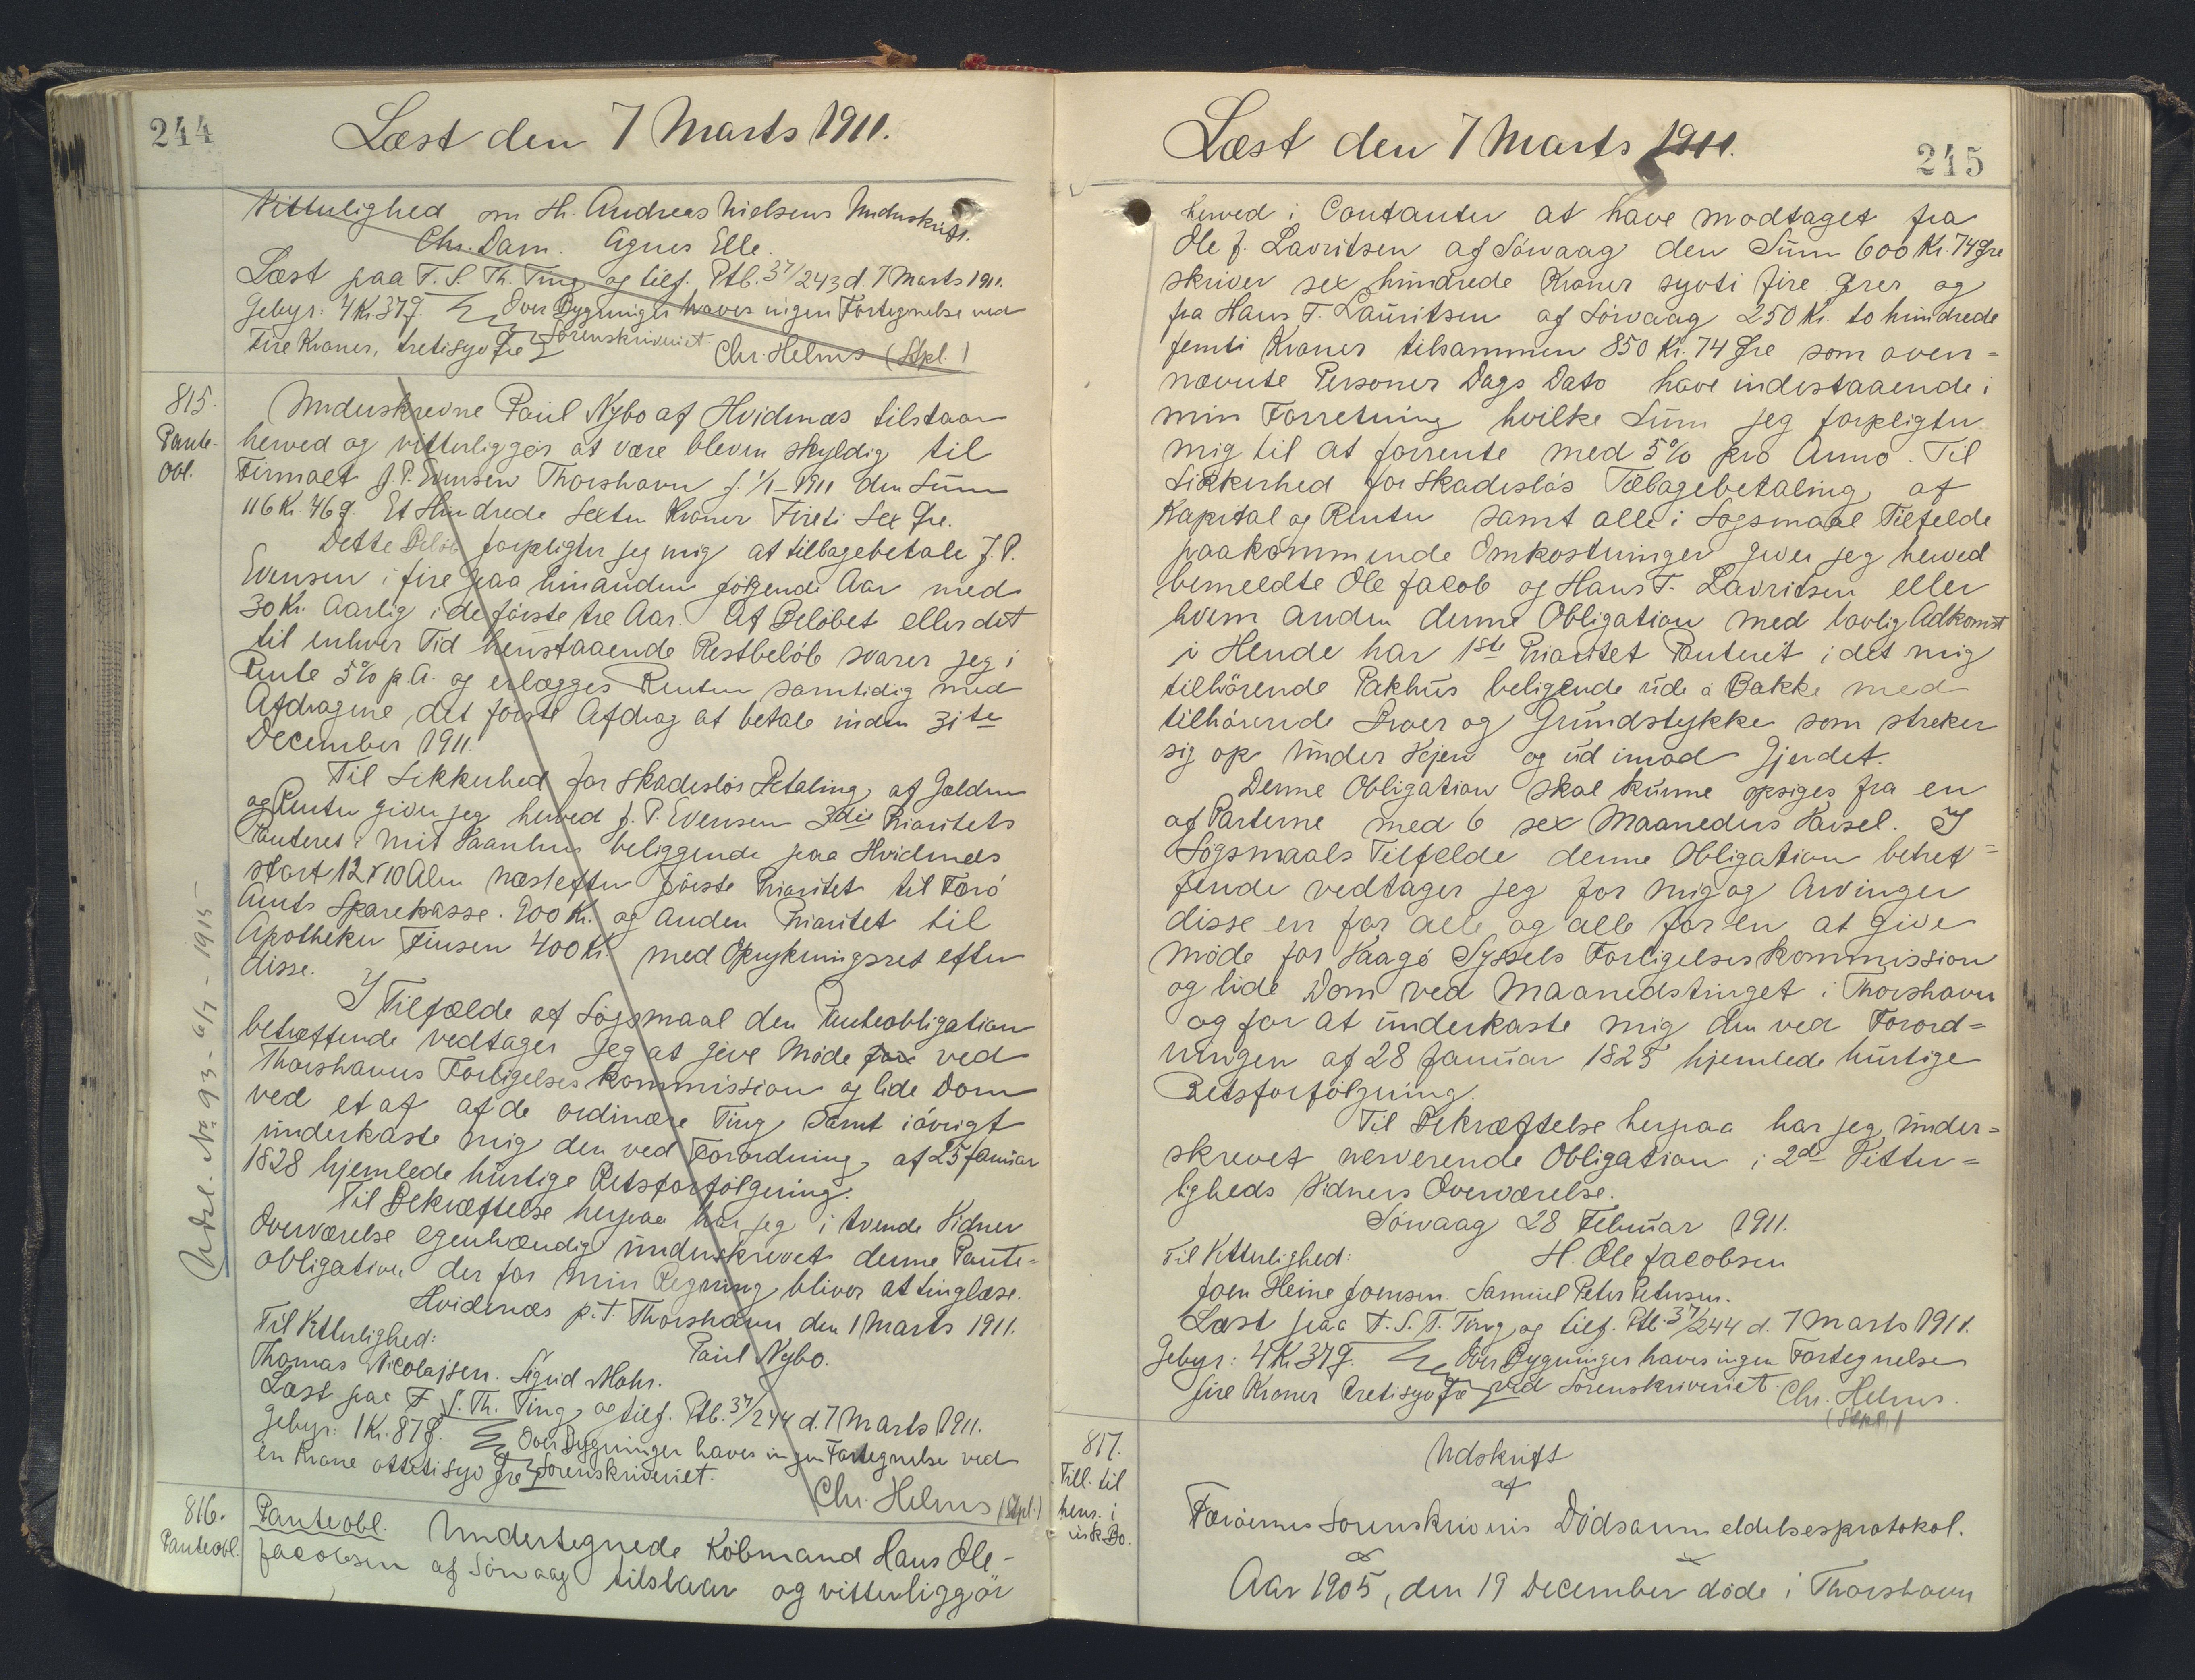 244
Læst den 7 Marts 1911.
Vitterlighed om H. Andreas Nielsens Underskrift.
Chr. Dam. Agnes Elle.
Læst paa F. S. Th. Ting og tilf. Ptb. 37/243 d. 7 Marts 1911.
Gebyr: 4 Kr 37 Ø. Over Bygninger haves ingen Fortegnelse ved
Fire Kroner, tretisyv Øre Sorenskriveriet
Chr. Helms (Stpl.)
815.
Pante-
Obl.
Underskrevne Paul Nybo af Hvidenæs tilstaar
herved og vitterliggør at være bleven skyldig til
Firmaet J. P. Evensen Thorshavn f. 1/1-1911 den Sum
116 Kr. 46 Ø. Et Hundrede Sexten Kroner Fireti Sex Øre.
Dette Beløb forpligter jeg mig at tilbagebetale J. P.
Evensen i fire paa hinanden følgende Aar med
30 Kr. Aarlig i de første tre Aar. Af Beløbet eller det
til enhver Tid henstaaende Restbeløb svarer jeg i
Rente 5% p. A. og erlægges Renten samtidig med
Afdragene det første Afdrag at betale inden 31te
December 1911.
Til Sikkerhed for skadesløs Betaling af Gælden
og Renter giver jeg herved J. P. Evensen 3die Prioritets
Panteret i mit Vaanhus beliggende paa Hvidenæs
stort 12 x 10 Alen næstefter første Prioritet til Færø
Amts Sparekasse. 900 Kr. og anden Prioritet til
Apotheker Finsen 400 Kr. med Oprykningsret efter
disse.
I Tilfælde af Søgsmaal den Panteobligation
betræffende vedtager jeg at give Møde for ved
Thorshavns Forligelses kommission og lide Dom
ved et af af de ordinære Ting samt iøvrigt
underkaste mig den ved Forordning af 25 Januar
1828 hjemlede hurtige Retsforfølgning.
Til Bekræftelse herpaa har jeg i tvende Vidner
Overværelse egenhændig underskrevet denne Pante-
obligation der for min Regning bliver at tinglæse.
Hvidenæs p. T. Thorshavn den 1 Marts 1911.
Til Vitterlighed:
Paul Nybo.
Thomas Nicolajsen. Sigrid Mohr.
Læst paa F. S. Th. Ting og tilf. Ptb. 37/244 d. 7 Marts 1911.
Gebyr: 1 Kr. 87 Ø. Over Bygninger haves ingen Fortegnelse ved
en Krone ottetisyv Øre Sorenskriveriet.
Chr. Helms (Stpl.)
Udsl. No 93 - 6/7 - 1915
816.
Panteobl.
Panteobl. Undertegnede Købmand Hans Ole-
Jacobsen af Sørvaag tilstaar og vitterliggør
245
Læst den 7 Marts 1911.
herved i Contanter at have modtaget fra
Ole J. Lavritsen af Sørvaag den Sum 600 Kr. 74 Øre
skriver sex hundrede Kroner syvti fire Ører og
fra Hans T. Lauritsen af Sørvaag 250 Kr. to hundrede
femti Kroner tilsammen 850 Kr. 74 Øre som oven=
nævnte Personer Dags Dato have indestaaende i
min Forretning hvilke Sum jeg forpligter
mig til at forrente med 5% pro Anno. Til
Sikkerhed for skadesløs Tilbagebetaling af
Kapital og Renter samt alle i Søgsmaal Tilfelde
paakommende Omkostninger giver jeg herved
bemeldte Ole Jacob og Hans T. Lavritsen eller
hvem anden denne Obligation med lovlig Adkomst
i Hende har 1ste Prioritet Panteret i det mig
tilhørende Pakhus beligende ude á Bakke med
tilhørende Arver og Grundstykke som streker
sig op under Vejen og ud imod Gjerdet.
Denne Obligation skal kunne opsiges fra en
af Parterne med 6 sex Maaneders Varsel. I
Søgsmaals Tilfelde denne Obligation betref=
fende vedtager jeg for mig og Arvinger
disse en for alle og alle for en at give
møde for Vaagø Syssels Forligelseskommission
og lide Dom ved Maanedstinget i Thorshavn
og for at underkaste mig den ved Forord=
ningen af 28 Januar 1825 hjemlede hurtige
Retsforfølgning.
Til Bekræftelse herpaa har jeg under=
skrevet nerverende Obligation i 2de Vitter=
ligheds Vidners Overværelse.
Sørvaag 28 Februar 1911.
Til Vitterlighed:
H. Ole Jacobsen
Joen Heine Joensen. Samuel Peter Petersen.
Læst paa F. S. T. Ting og tilf. Ptb. 37/244 d. 7 Marts 1911.
Gebyr: 4 Kr 37 Ø. Over Bygninger haves ingen Fortegnelse
fire Kroner tretisyv Øre ved Sorenskriveriet. Chr. Helms.
(Stpl.)
817.
Till. til
hens. i
usk. Bo.
Udskrift
af
Færøernes Sorenskriveris Dødsanmeldelsesprotokol.
Aar 1905, den 19 December døde i Thorshavn